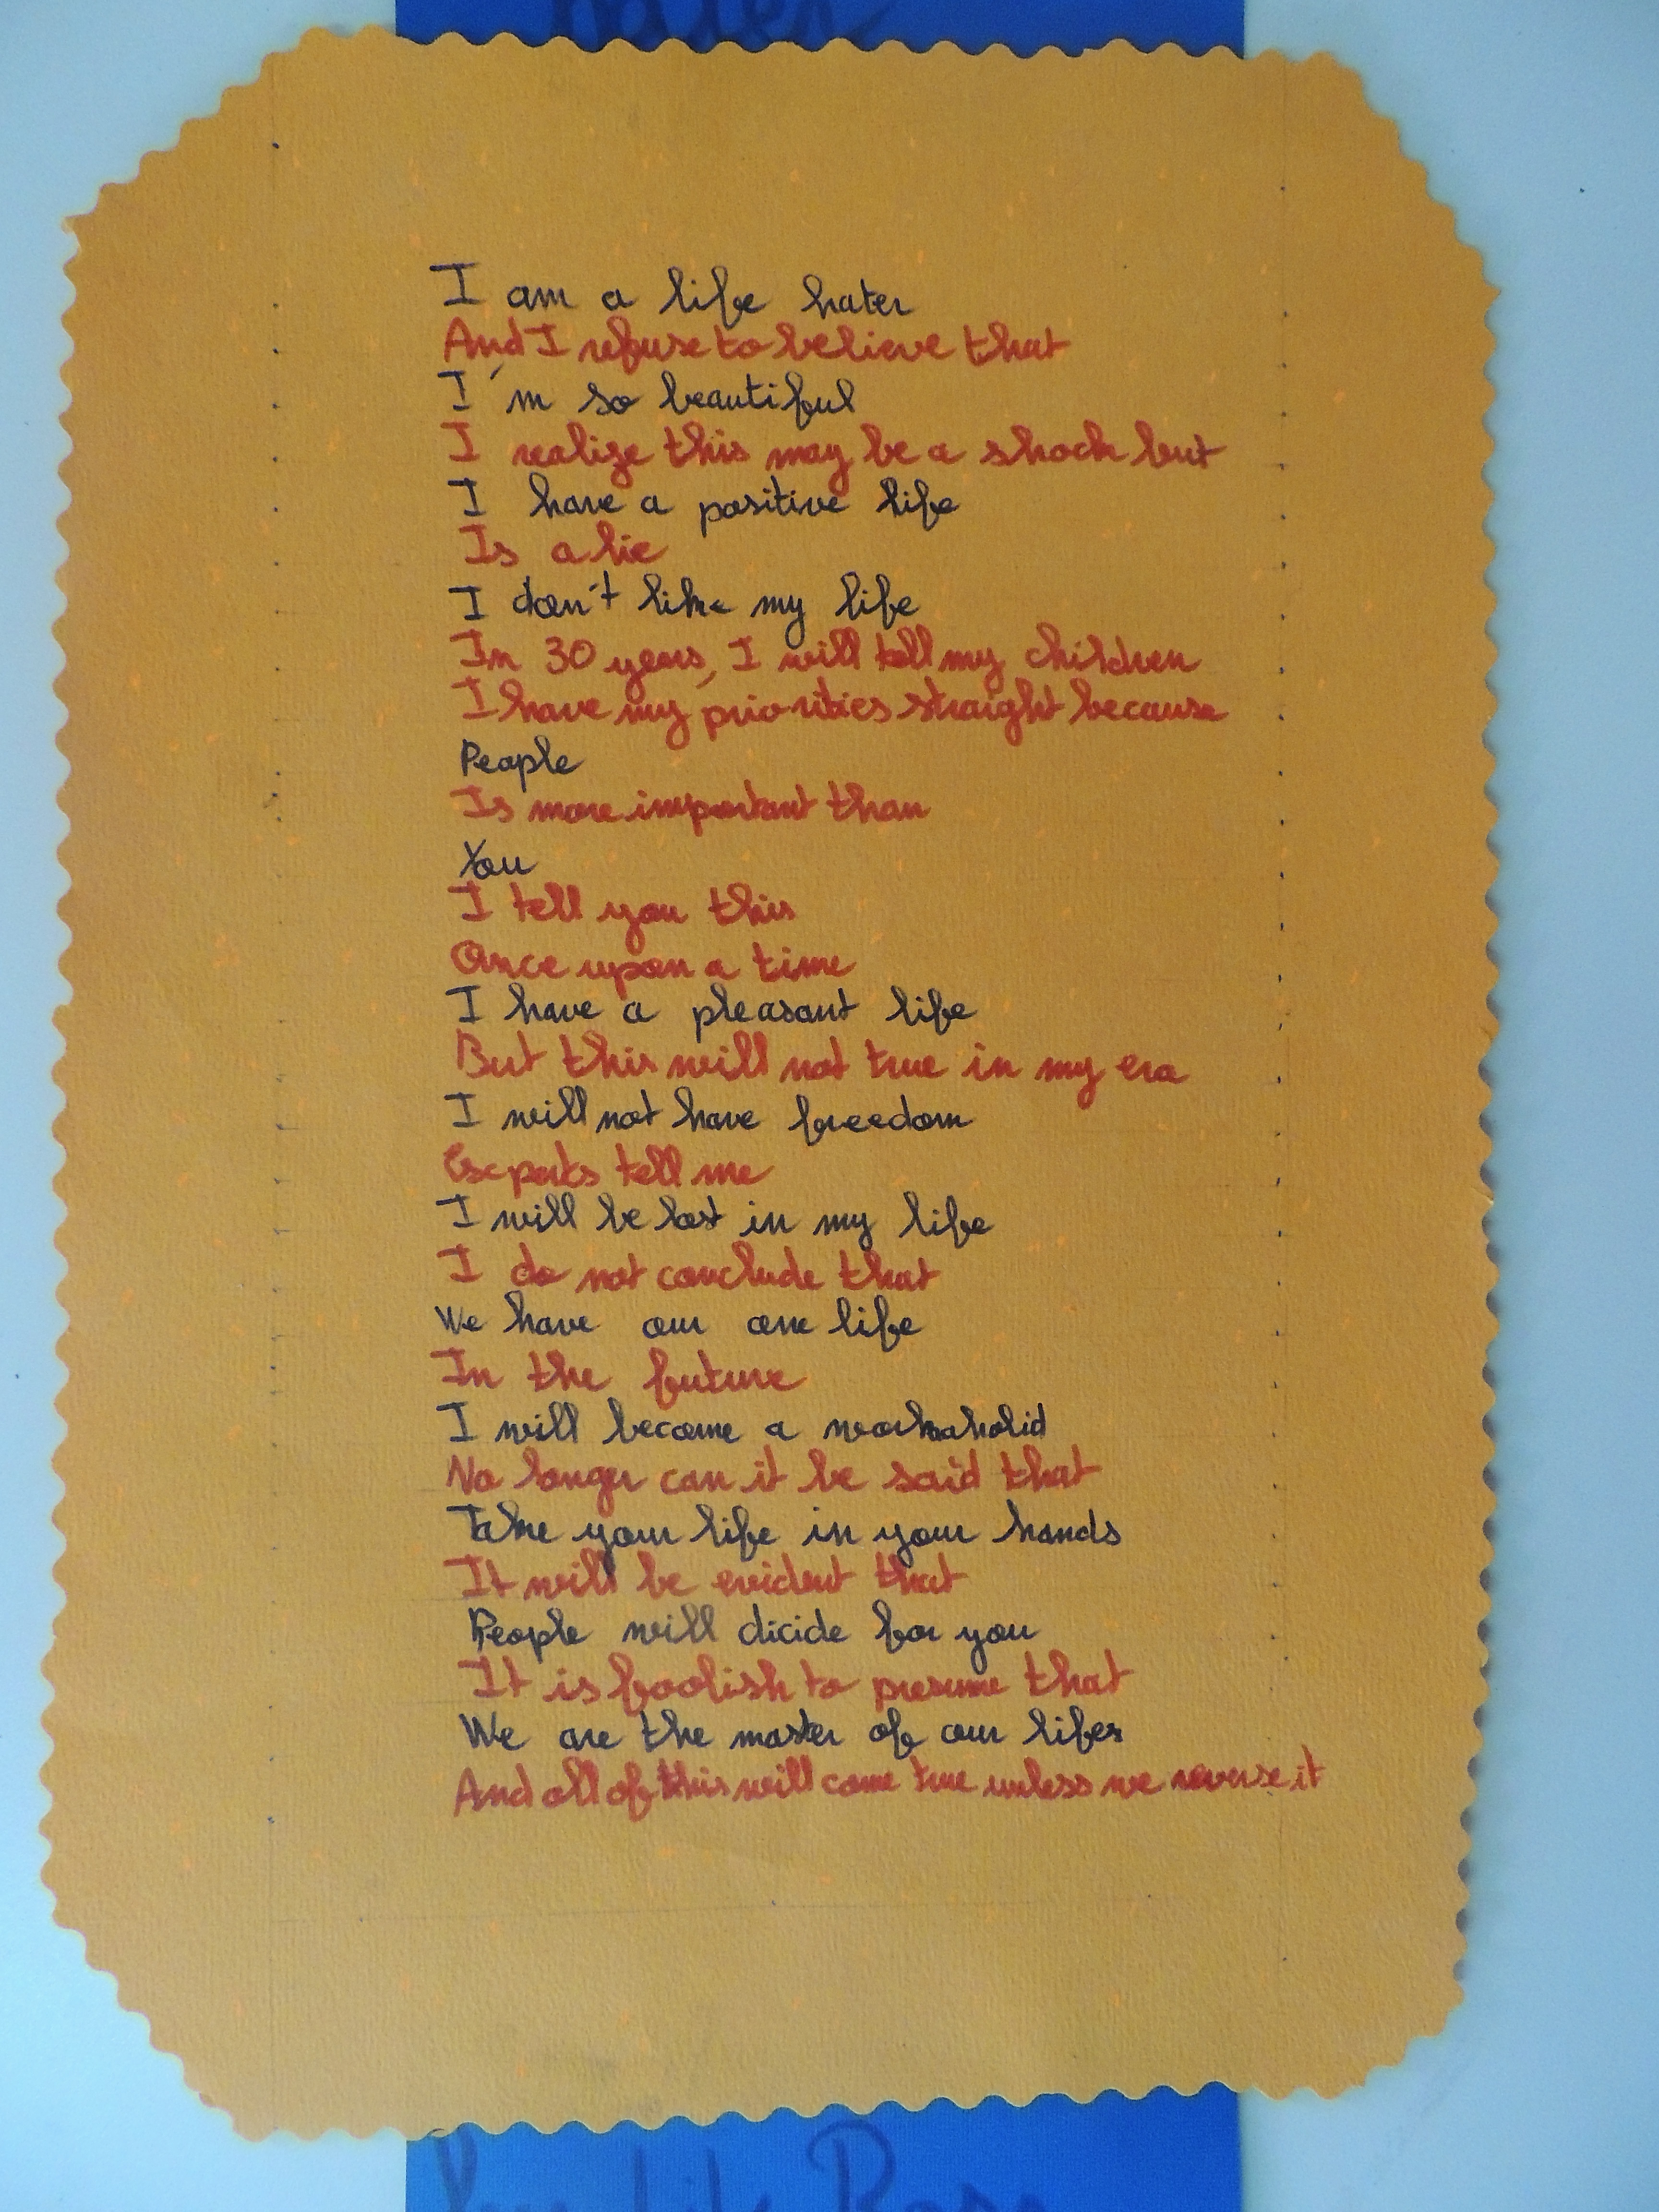 hater
I am a life hater
And I refuse to believe that
I'm so beautiful
I realize this may be a shock but
I have a positive life
Is a lie
I don't like my life
In 30 years, I will tell my children
I have my priorities straight because
People
Is more important than
You
I tell you this
Once upon a time
I have a pleasant life
But this will not true in my era
I will not have freedom
Experts tell me
I will be lost in my life
I do not conclude that
We have our one life
In the future
I will become a workaholid
No longer can it be said that
Take your life in your hands
It will be evident that
People will dicide for you
It is foolish to presume that
We are the master of our lifes
And all of this will come true unless we reverse it